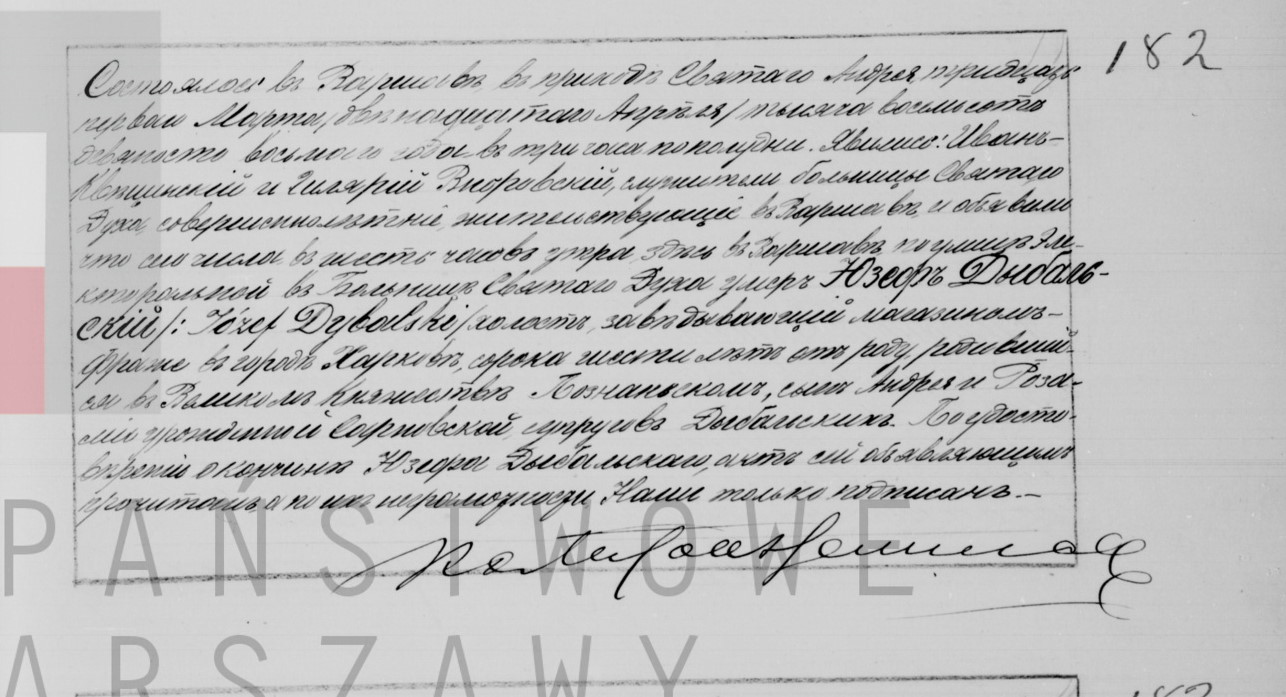 182
Состоялось въ Варшавѣ, въ приходѣ Святаго Андрея, тридцать
перваго Марта /двѣнадцатаго Апрѣля/ тысяча восемьсотъ
девяносто восьмого года въ три часа пополудни. Явились: Иванъ
и Гилярій служители больницы Святаго
Духа, совершеннолѣтніе, жительствующіе въ Варшавѣ, и объявили
что сего числа въ шесть часовъ утра, здѣсь въ Варшавѣ по улицѣ Эле-
кторальной въ Больницѣ Святаго Духа умеръ Юзефъ Дыбаль-
скій /: Józef Dybalski / холостъ, завѣдывающій магазиномъ
въ городѣ Харковѣ, сорока шести лѣтъ отъ роду, родивший-
ся въ Великомъ Княжествѣ Познаньскомъ, сынъ Андрея и Роза-
ліи урожденной Сарновской, супруговъ Дыбальскихъ. По удосто-
вѣреніи о кончинѣ Юзефа Дыбальскаго, актъ сей объявляющимъ
прочитанъ, а по ихъ неграмотности, Нами только подписанъ. —
PAŃSTWOWE
ARSZAWY